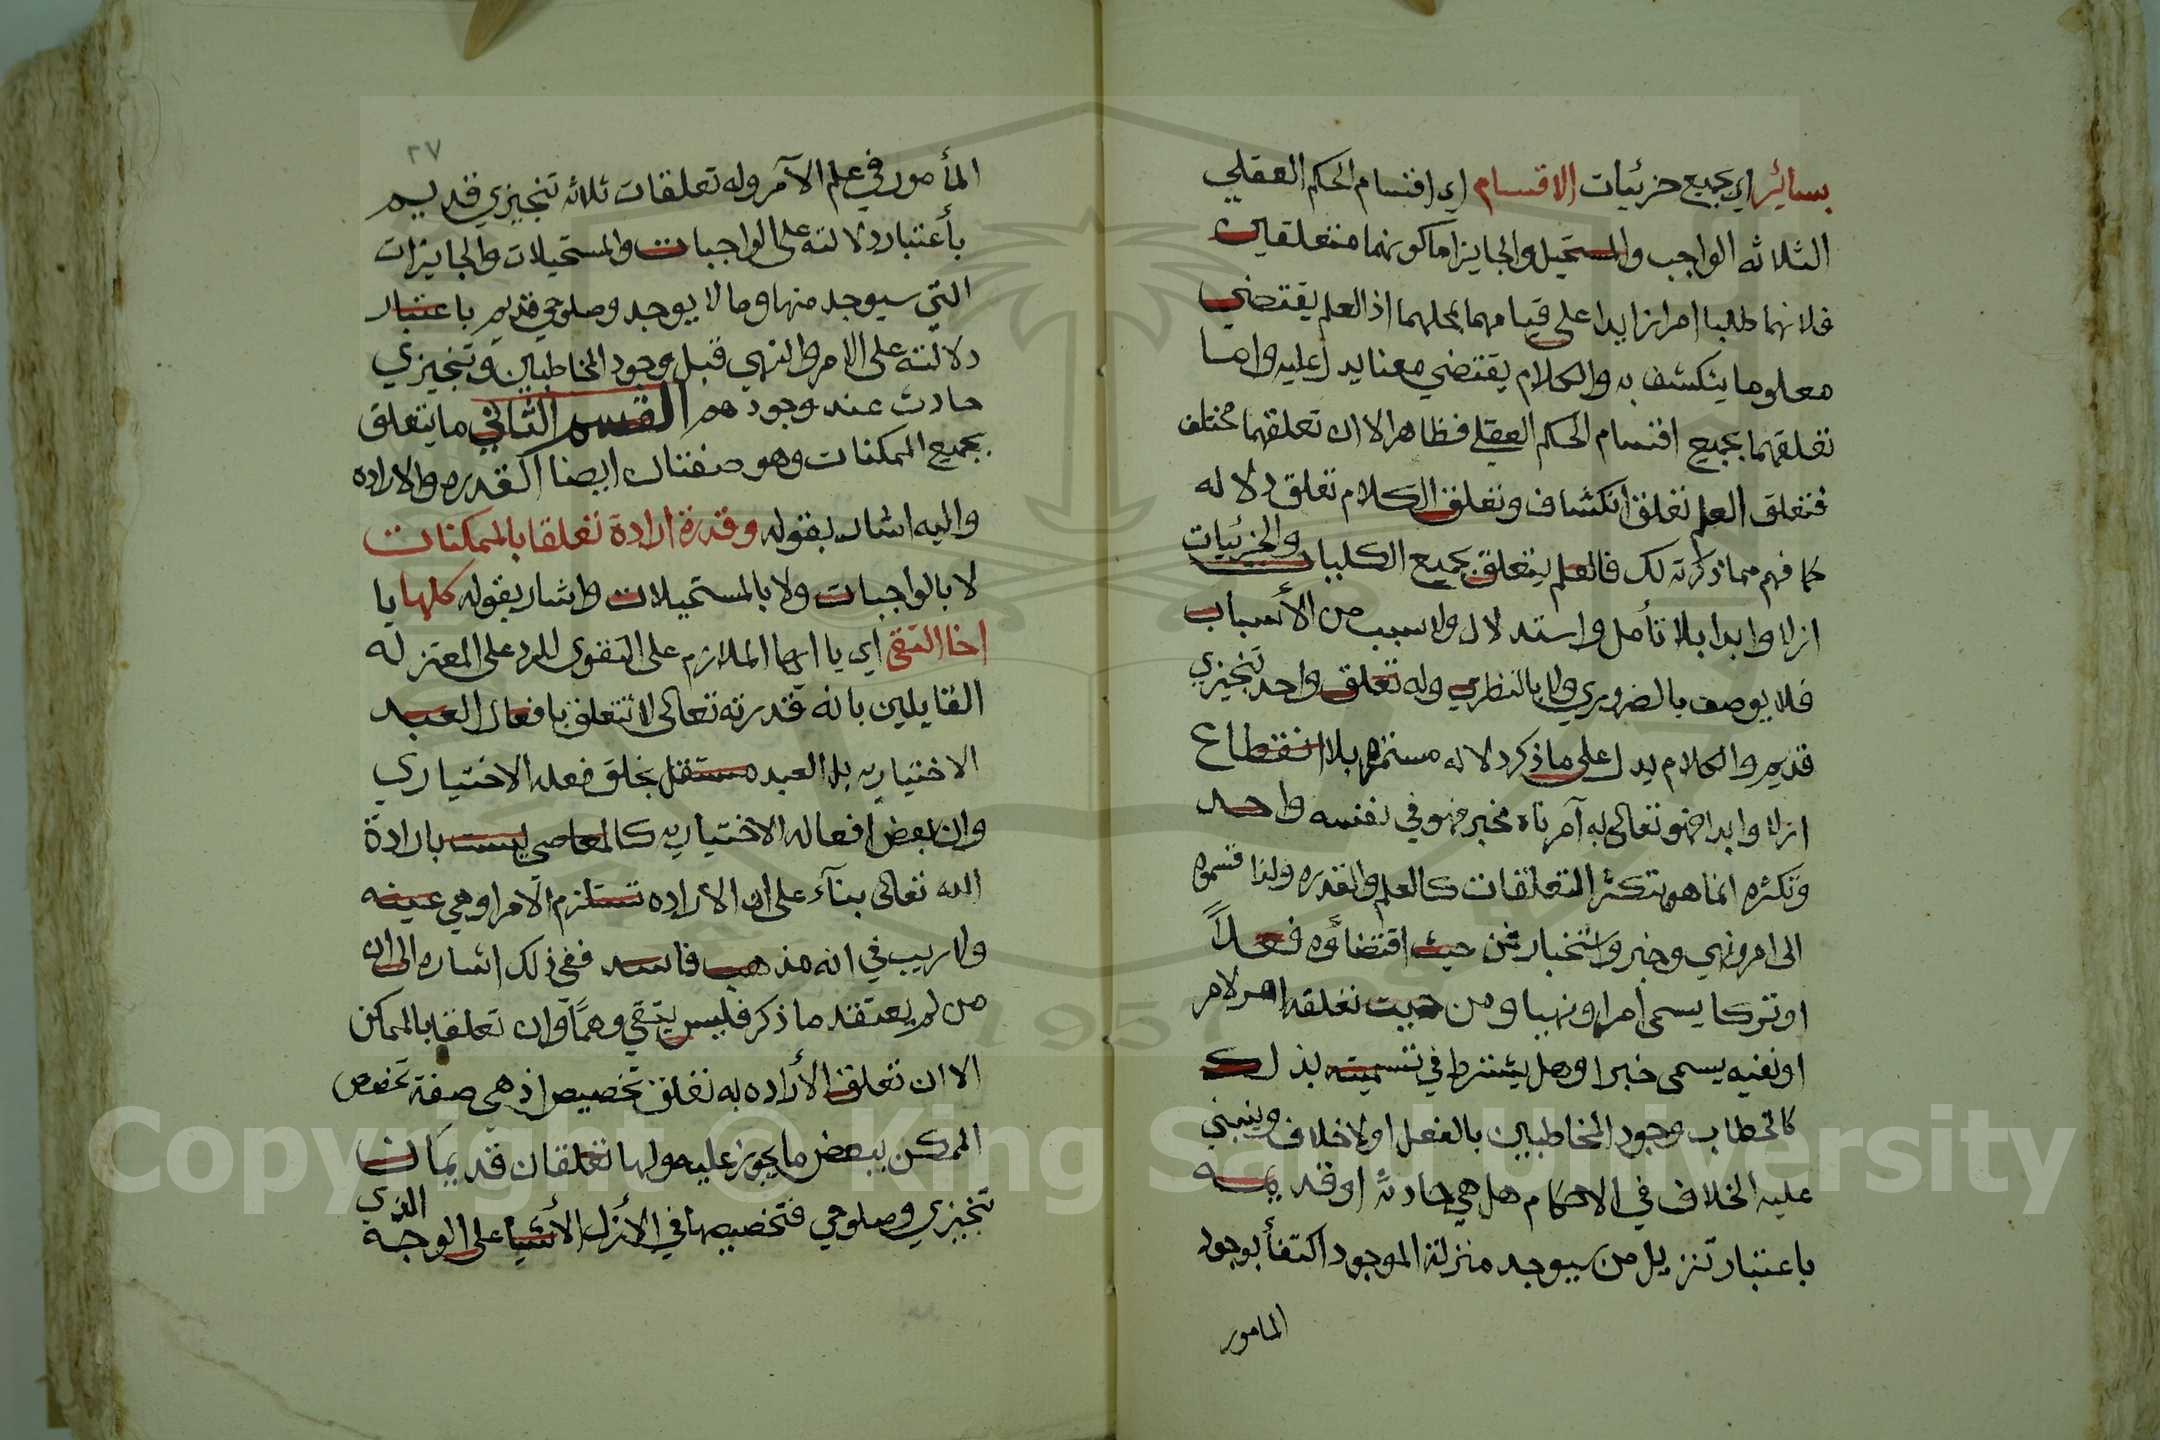 بسائر اي بجميع جزئيات الاقسام اي اقسام الحكم العقلي
الثلاثه الواجب والمستحيل والجايز اما كونهما متعلقين
فلانهما طلبا امرا زايدا على قيامهما بمحلهما اذ العلم يقتضي
معلوما ينكشف به والكلام يقتضي معنا يدل عليه واما
تعلقهما بجميع اقسام الحكم العقلي فظاهر الا ان تعلقهما مختلف
فتعلق العلم تعلق انكشاف وتعلق الكلام تعلق دلاله
كما فهم مما ذكرته لك فالعلم يتعلق بجميع الكليات والجزئيات
ازلا وابدا بلا تأمل واستدلال ولا سبب من الأسباب
فلا يوصف بالضروري ولا بالنظري وله تعلق واحد تنجيزي
قديم والكلام يدل على ما ذكر دلاله مستمرة بلا انقطاع
ازلا وابدا فهو تعالى به آمر ناه مخبر فهو في نفسه واحد
وتكثره انما هو بتكثر التعلقات كالعلم والقدره ولذا قسموه
الى امر ونهي وخبر واستخبار فمن حيث اقتضاؤه فعلاً
او تركا يسمى امرا ونهيا ومن حيث تعلقه امر لامر
او نفيه يسمى خبرا وهل يشترط في تسميته بذلك
كالخطاب وجود المخاطبين بالفعل اولا خلاف وينبني
عليه الخلاف في الاحكام هل هي حادثه او قديمه
باعتبار تنزيل من سيوجد منزلة الموجود اكتفأ بوجود
المامور
٢٧
المأمور في علم الآمر وله تعلقات ثلاثه تنجيزي قديم
بأعتبار دلالته على الواجبات والمستحيلات والجايزات
التي سيوجد منها وما لا يوجد وصلوحي قديم باعتبار
دلالته على الامر والنهي قبل وجود المخاطبين وتنجيزي
حادث عند وجودهم القسم الثاني ما يتعلق
بجميع الممكنات وهو صفتان ايضا القدره والاراده
واليه اشار بقوله وقدرة ارادة تعلقا بالممكنات
لا بالواجبات ولا بالمستحيلات واشار بقوله كلها يا
اخا التقى اي يا ايها الملازم على التقوى للرد على المعتزله
القايلين بانه قدرته تعالى لا تتعلق بافعال العبد
الاختياريه بل العبد مستقل بخلق فعله الاختياري
وان بعض افعاله الاختياريه كالمعاصي ليست بارادة
الله تعالى بنآء على ان الأراده تستلزم الأمر او هي عينه
ولا ريب في انه مذهب فاسد ففي ذلك اشاره الى ان
من لم يعتقد ما ذكر فليس بتقي وهما وان تعلقا بالممكن
الا ان تعلق الأراده به تعلق تخصيص اذ هي صفة تخصص
الممكن ببعض ما يجوز عليه ولها تعلقان قديمان
تنجيزي وصلوحي فتخصيصها في الأزل الأشيا على الوجه الذي
Copyright © King Saud University
1957